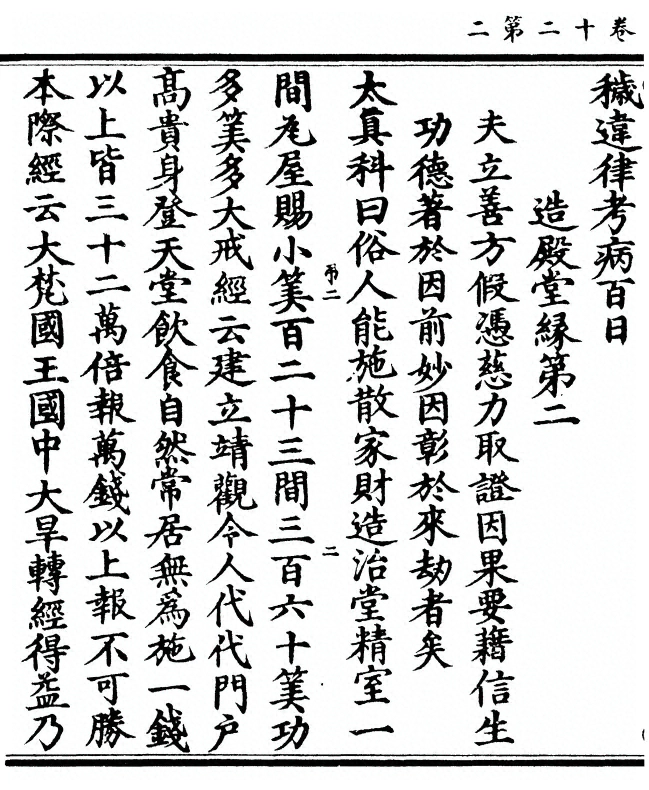 卷十二第二
穢違律考病百日
造殿堂縁第二
夫立善方假憑慈力取證因果要藉信生
功德著於因前妙因彰於來劫者矣
太真科曰俗人能施散家財造治堂精室一
間瓦屋賜小筭百二十三間三百六十筭功
多筭多大戒經云建立靖觀令人代代門户
高貴身登天堂飲食自然常居無爲施一錢
以上皆三十二萬倍報萬錢以上報不可勝
本際經云大梵國王國中大旱轉經得益乃
二